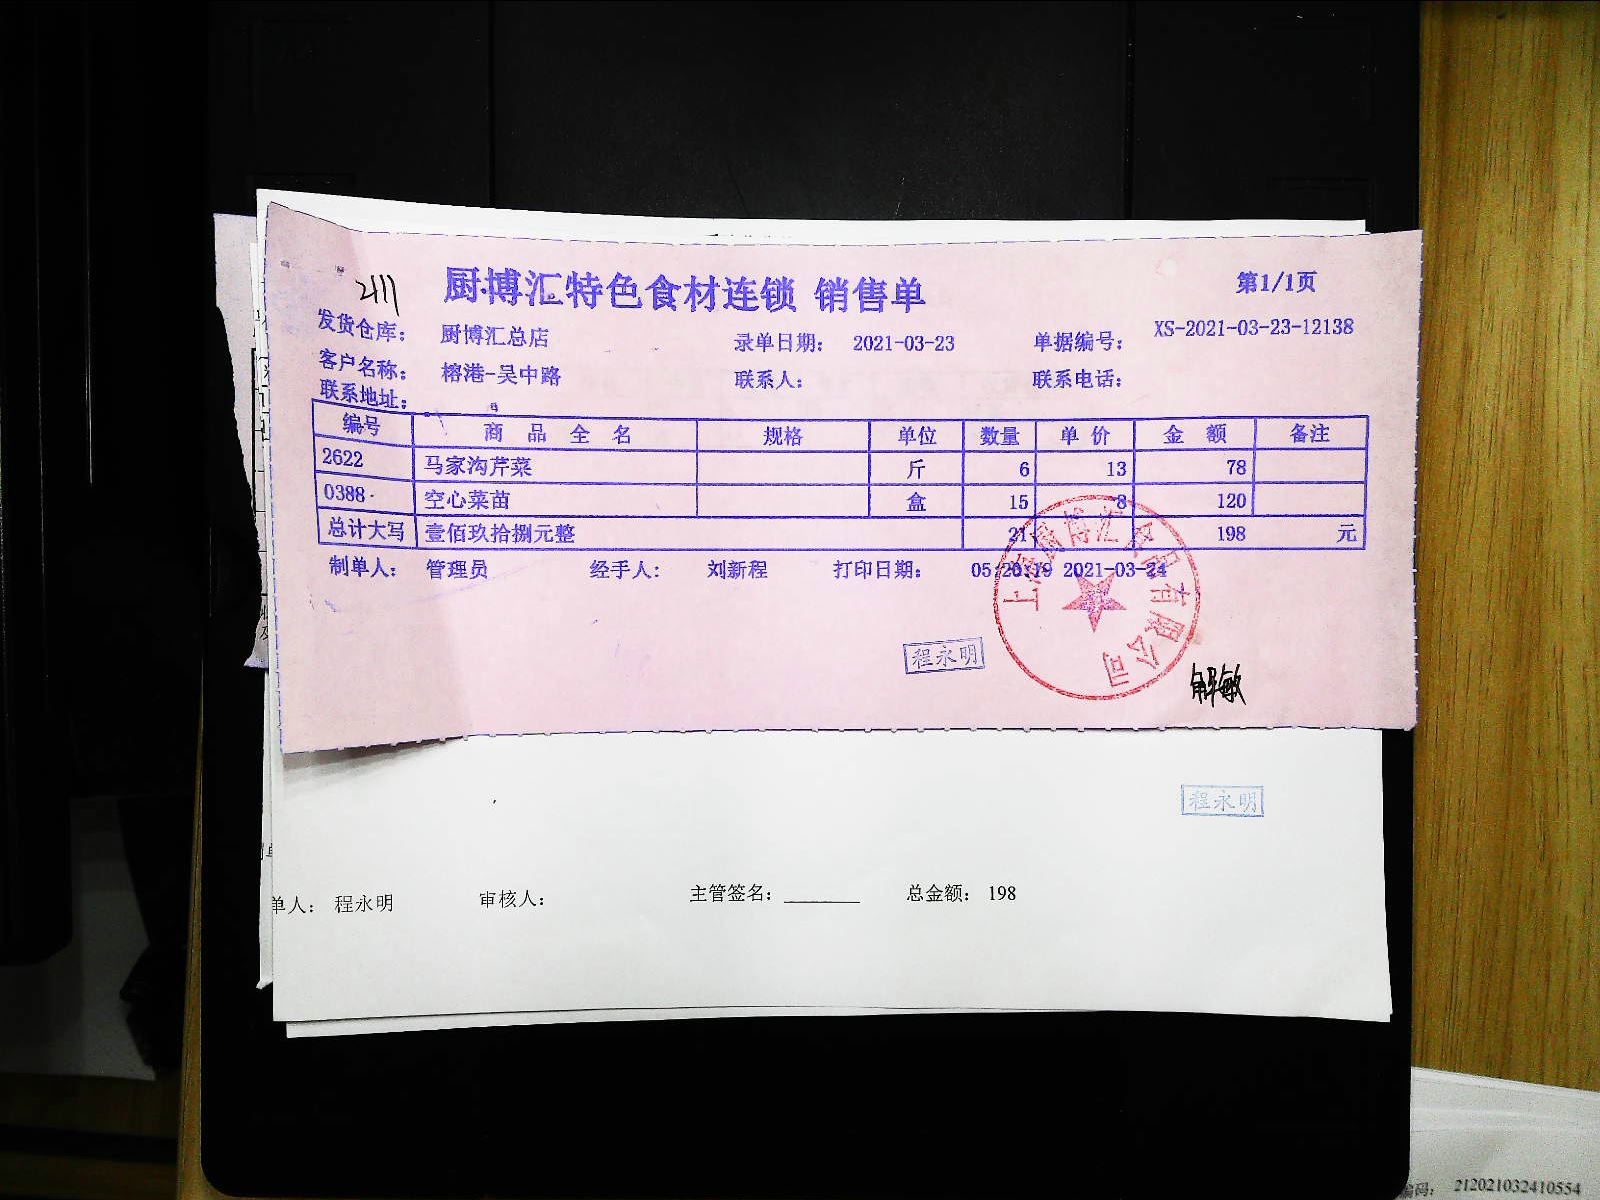 2111 厨博汇特色食材连锁 销售单 第1/1页
发货仓库： 厨博汇总店 录单日期： 2021-03-23 单据编号： XS-2021-03-23-12138
客户名称： 榕港-吴中路 联系人： 联系电话：
联系地址：
编号 商品全名 规格 单位 数量 单价 金额 备注
2622 马家沟芹菜 斤 6 13 78
0388 空心菜苗 盒 15 8 120
总计大写 壹佰玖拾捌元整 21 198 元
制单人： 管理员 经手人： 刘新程 打印日期： 05:20:19 2021-03-24
上海厨博汇 有限公司
程永明
解敏
程永明
单人： 程永明 审核人： 主管签名：______ 总金额： 198
编码： 212021032410554